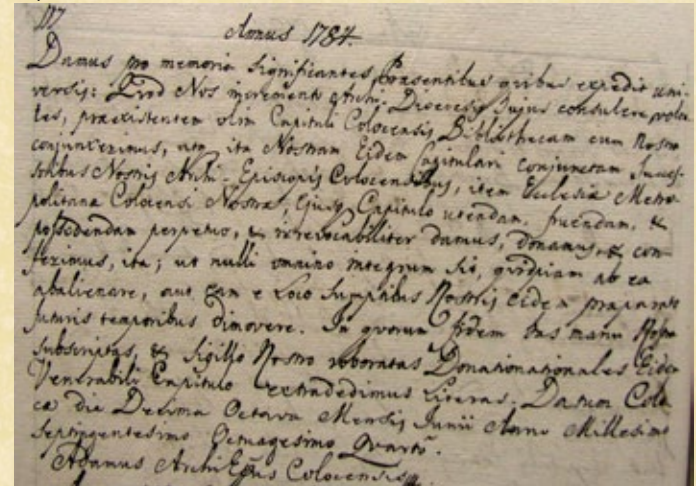 Annus 1784.
Damus pro memoria Significantes Praesentibus quibus expedit uni-
versis: Quod Nos incremento Archi-Dioecesis hujus consulere volen-
tes, praeexistentem olim Capituli Colocensis Bibliothecam cum Nostra
conjunxerimus, atq ita Nostram Eidem Capitulari conjunctam Succes-
soribus Nostris Archi-Episcopis Colocensibus, item Ecclesiae Metro-
politanae Colocensi Nostrae, Ejusq Capitulo utendam, fruendam, &
possidendam perpetuo, & irrevocabiliter damus, donamus, & con-
ferimus, ita; ut nulli omnino integrum sit, quidpiam ab ea
abalienare, aut eam e Loco Sumptibus Nostris eidem praeparato
futuris temporibus dimovere. In quorum fidem has manu Nostra
subscriptas, & Sigillo Nostro roboratas Donationationales Eidem
Venerabili Capitulo extradedimus Literas. Datum Colo-
cae die Decima Octava Mensis Junii Anno Millesimo
Septingentesimo Octuagesimo Quarto.
Adamus Archi Eppus Colocensis